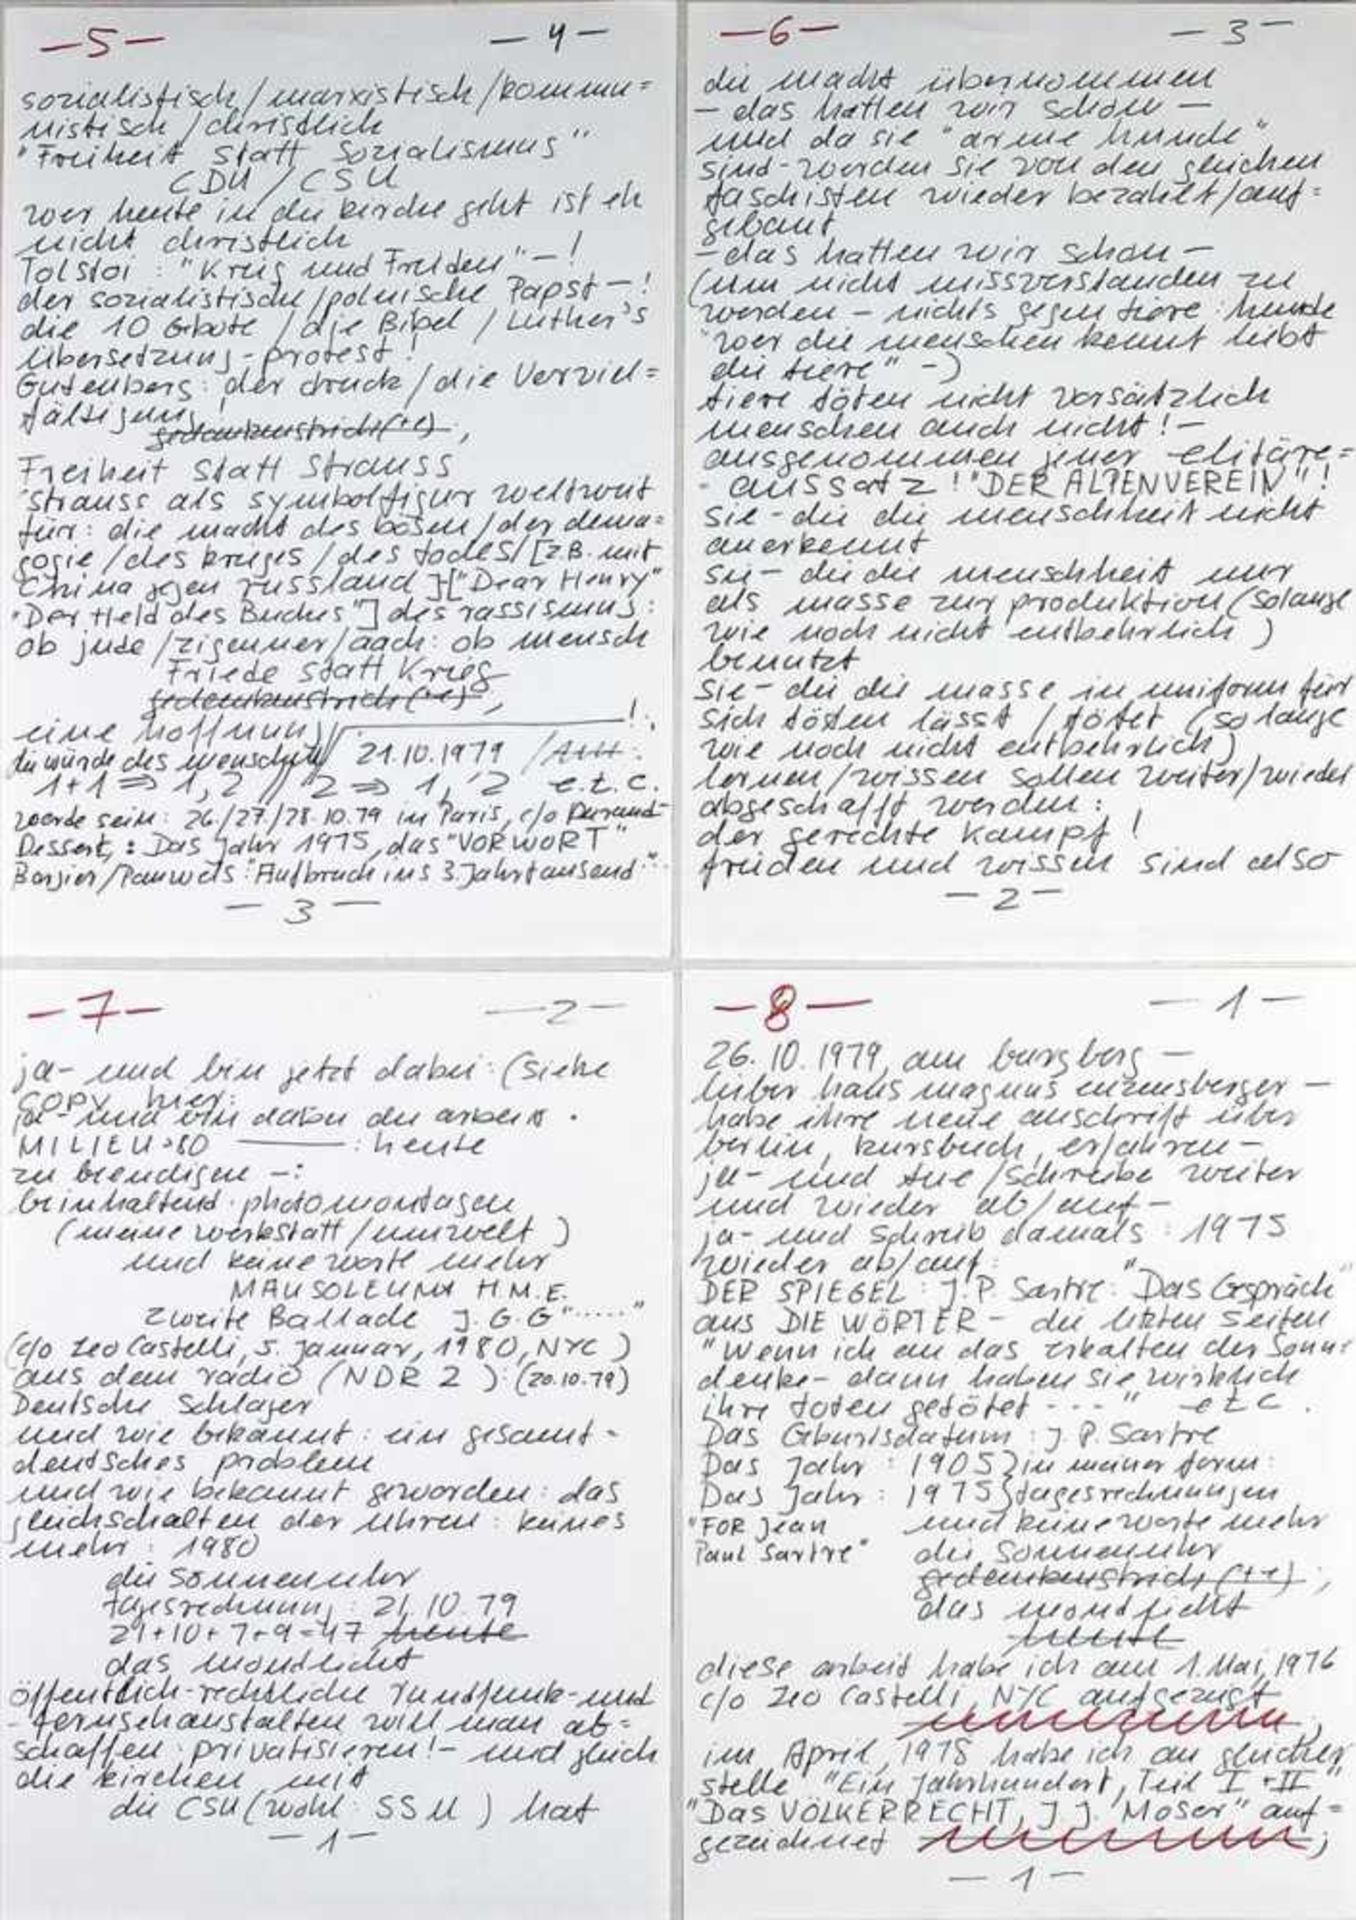 -5-
-4-
sozialistisch/marxistisch/kommu=
nistisch/christlich
"Freiheit statt Sozialismus"
CDU/CSU
wer heute in die kirche geht ist eh
nicht christlich
Tolstoi: "Krieg und Frieden"-!
der sozialistische/polnische Papst-!
die 10 Gebote/die Bibel/Luther's
Übersetzung-protest!
Gutenberg: der druck/die Verviel=
fältigung!
gedankenstrich(+e),
Freiheit statt Strauss
strauss als symbolfigur weltweit
für: die macht des bösen/der dema=
gogie/des krieges/des todes/[z.B. mit
China gegen russland]["Dear Henry"
"Der Held des Buches"] des rassismus:
ob jude/zigeuner/ach: ob mensch
Friede statt Krieg
gedankenstrich(+e),
eine hoffnung
die würde des menschen // 21.10.1979
1+1 ⇒ 1,2 // 2 ⇒ 1, 2 e.t.c.
werde sein: 26/27/28.10.79 in Paris, c/o Durand-
Dessert,: Das Jahr 1975, das "VORWORT"
Bergier/Pauwels "Aufbruch ins 3. Jahrtausend"
-3-
-6-
-3-
die macht übernommen
-das hatten wir schon-
und da sie "arme hunde"
sind-werden sie von den gleichen
faschisten wieder bezahlt/auf=
gebaut
-das hatten wir schon-
(um nicht missverstanden zu
werden - nichts gegen tiere: hunde
"wer die menschen kennt liebt
die tiere" -)
tiere töten nicht vorsätzlich
menschen auch nicht!-
ausgenommen jener elitäre=
-aussatz! "DER ALTENVEREIN"!
sie-die die menschheit nicht
anerkennt
sie-die die menschheit nur
als masse zur produktion (solange
wie noch nicht entbehrlich)
benutzt
sie-die die masse in uniform für
sich töten lässt/tötet (solange
wie noch nicht entbehrlich)
lernen/wissen sollen weiter/wieder
abgeschafft werden:
der gerechte Kampf!
frieden und wissen sind also
-2-
-7-
-2-
ja-und bin jetzt dabei: (siehe
COPY hier:
ja-und bin dabei die arbeit.
MILIEU 80 ——: heute
zu beendigen -:
beinhaltend photomontagen
(meine werkstatt/umwelt)
und keine worte mehr
MAUSOLEUM H.M.E.
Zweite Ballade J.G.G"....."
(c/o Leo Castelli, 5. Januar, 1980, NYC)
aus dem radio (NDR 2): (20.10.79)
Deutsche Schlager
und wie bekannt: ein gesamt-
deutsches problem
und wie bekannt geworden: das
gleichschalten der uhren: keines
mehr: 1980
die sonnenuhr
tagesrechnung: 21.10.79
21+10+7+9=47 heute
das mondlicht
öffentlich-rechtliche rundfunk-und
-fernsehanstalten will man ab=
schaffen: privatisieren!-und gleich
die kirchen mit
die CSU (wohl: SSU) hat
-1-
-8-
-1-
26.10.1979, am burgberg-
lieber hans magnus enzensberger-
habe ihre neue anschrift über
berlin, kursbuch, erfahren-
ja-und tue/schreibe weiter
und wieder ab/auf-
ja-und schrieb damals: 1975
wieder ab/auf:
DER SPIEGEL: J.P. Sartre: "Das Gespräch"
aus DIE WÖRTER-die letzten Seiten
"Wenn ich an das erkalten der Sonne
denke-dann haben sie wirklich
ihre toten getötet ---" etc.
Das Geburtsdatum: J.P. Sartre
Das Jahr: 1905 } in meiner form:
Das Jahr: 1975 } tagesrechnungen
"FOR Jean und keine worte mehr
Paul Sartre" die sonnenuhr
gedankenstrich(+e),
das mondlicht
heute
diese arbeit habe ich am 1. Mai, 1976
c/o Leo Castelli, NYC aufgezeigt
im April, 1978 habe ich an gleicher
stelle "Ein Jahrhundert, Teil I + II"
"Das VÖLKERRECHT, J.J. Moser" auf=
gezeichnet
-1-